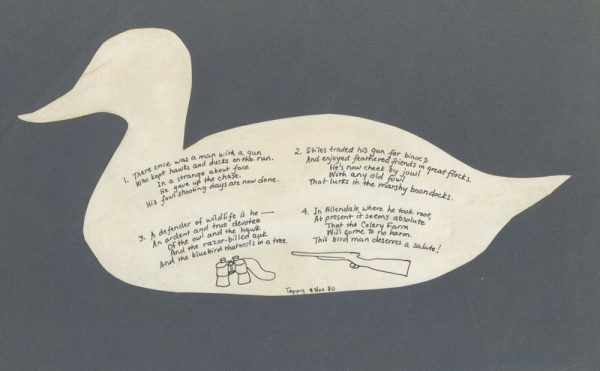 1. There once was a man with a gun
Who kept hawks and ducks on the run.
In a strange about face
He gave up the chase.
His fowl shooting days are now done.
2. Stiles traded his gun for binocs
And enjoyed feathered friends in great flocks.
He's now cheek by jowl
With any old fowl
That lurks in the marshy boondocks.
3. A defender of wildlife is he —
An ardent and true devotee
Of the owl and the hawk
And the razor-billed auk
And the bluebird that nests in a tree
4. In Allendale where he took root,
At present it seems absolute
That the Celery Farm
Will come to no harm.
This bird man deserves a salute!
Terry 9 Nov 80